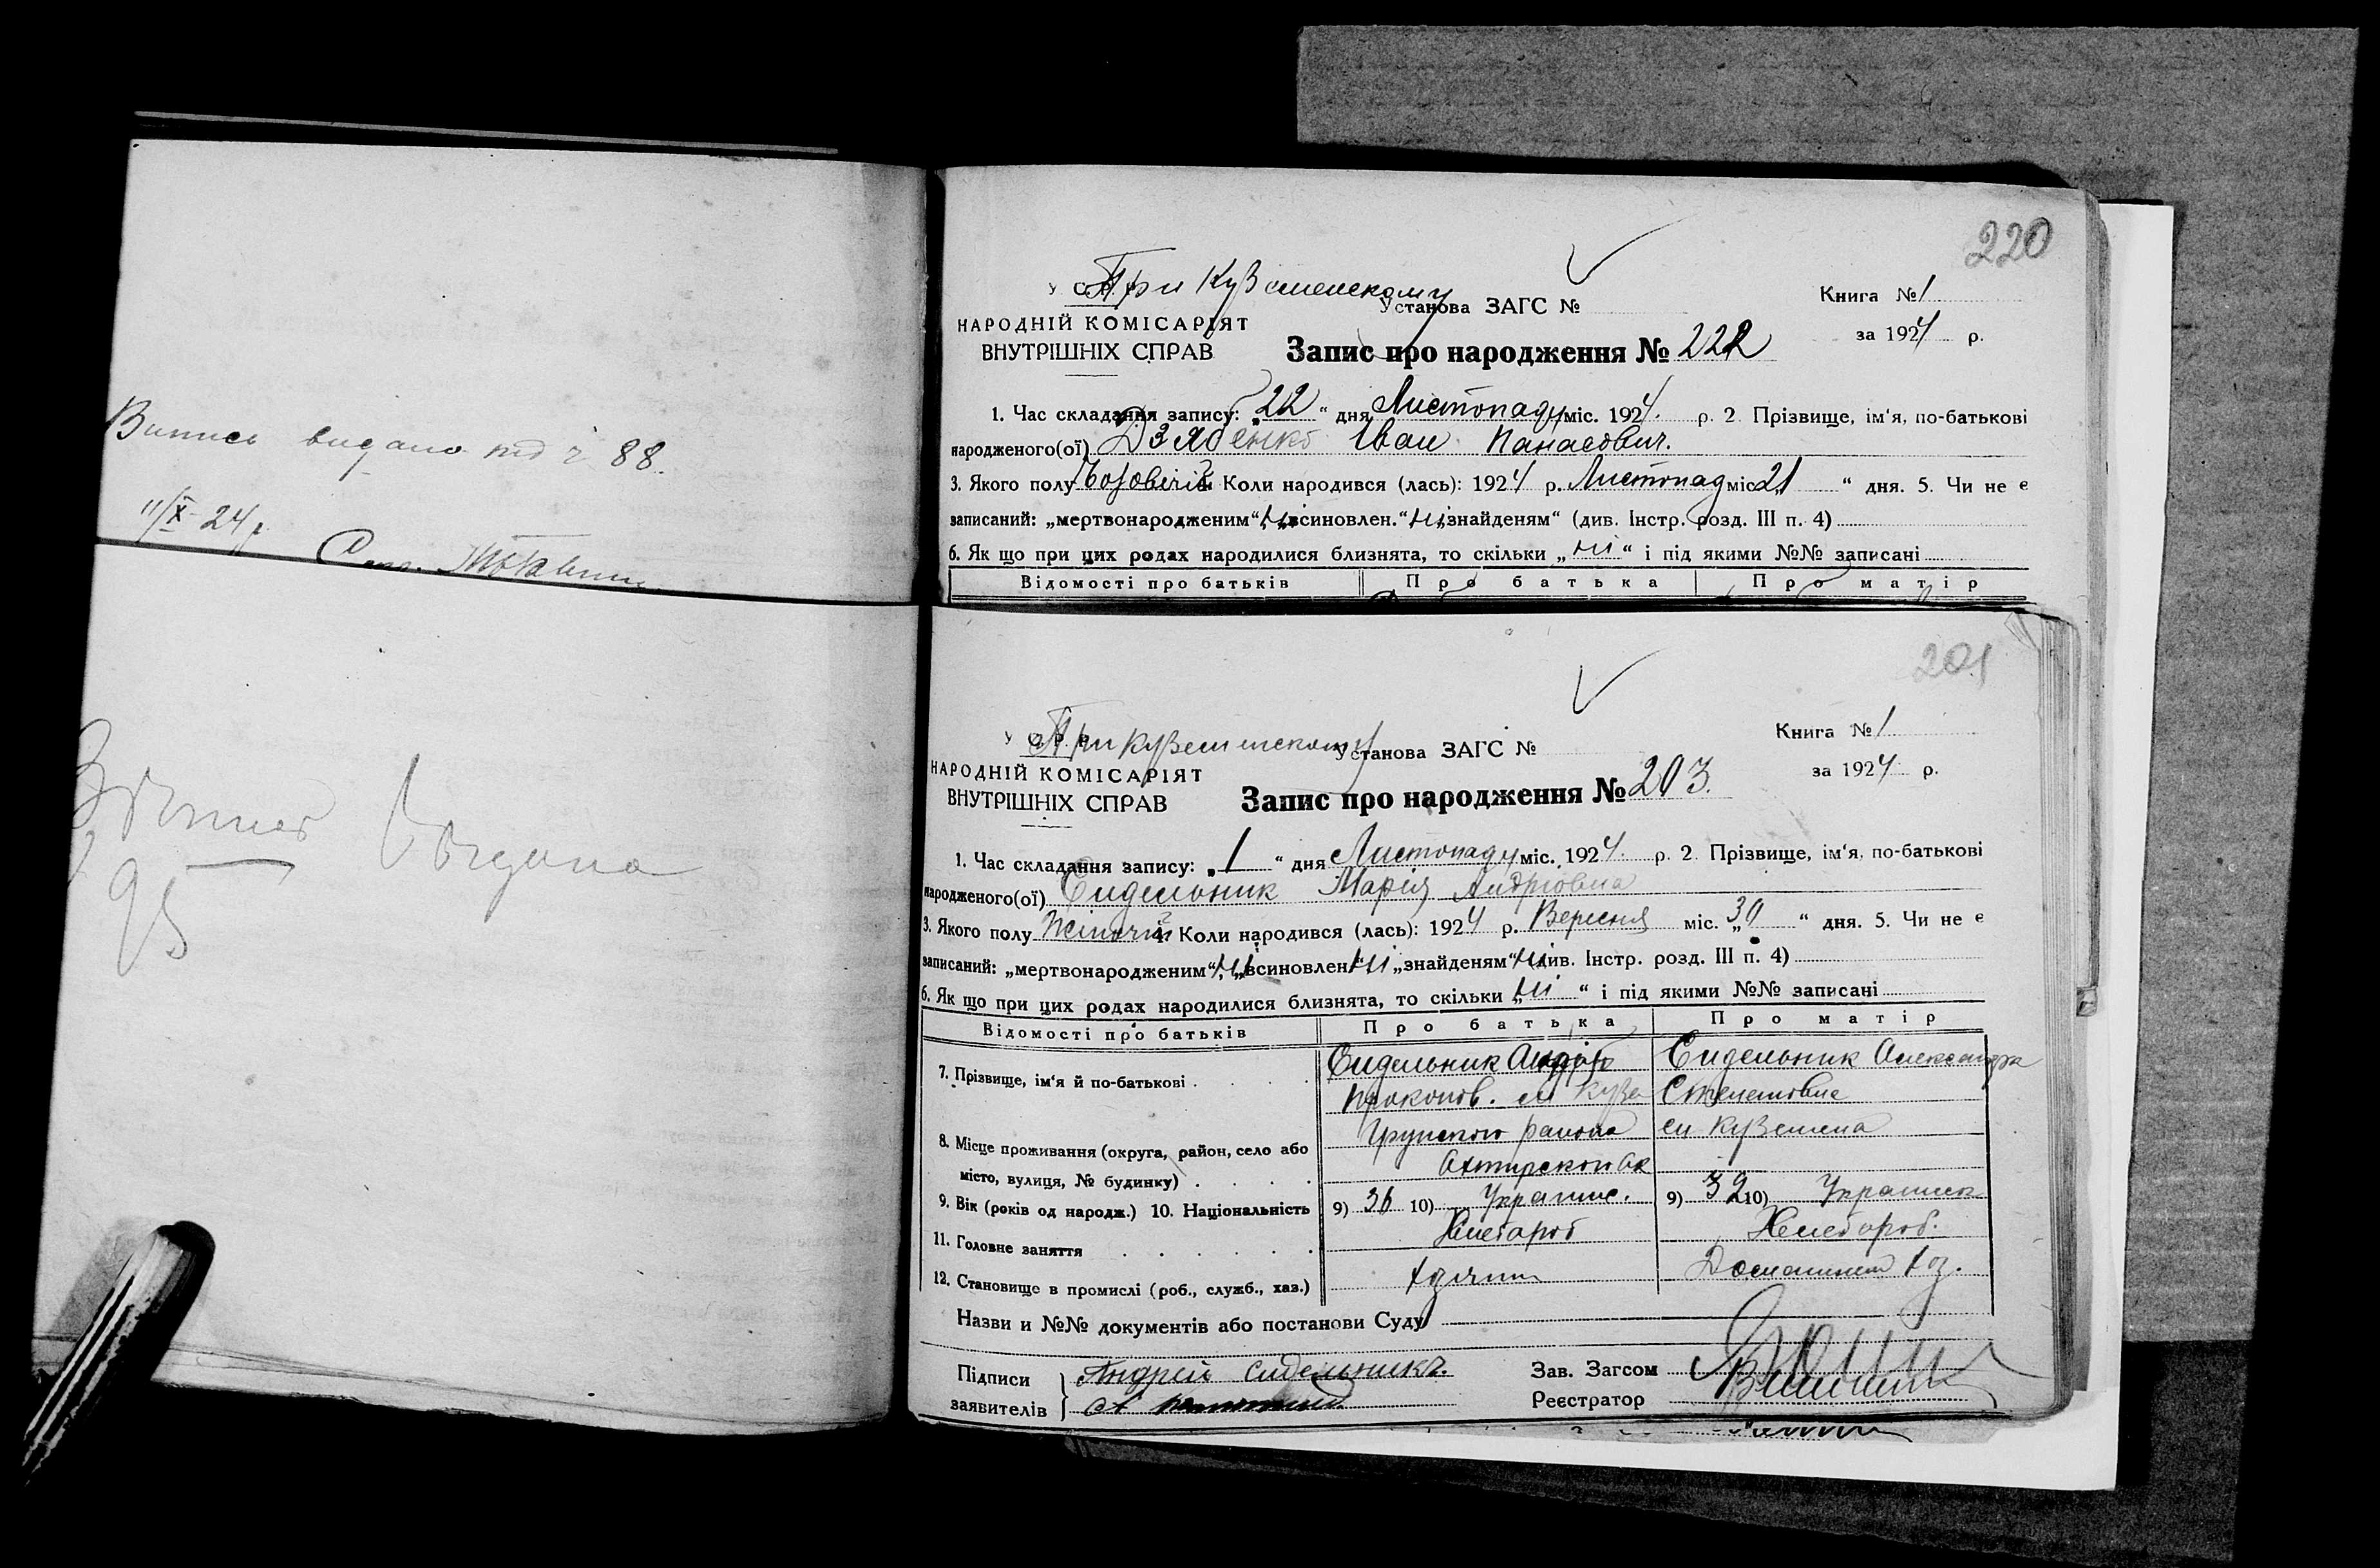 Випись видано під ч 88.
11/X 24 р
220
У.С.Р.Р. При Кузєменскому Установа ЗАГС №
Книга № 1
НАРОДНІЙ КОМІСАРІЯТ
ВНУТРІШНІХ СПРАВ
за 1924 р.
Запис про народження № 222
1. Час складання запису: „22“ дня Листопаду міс. 1924. р. 2. Прізвище, ім‘я, по-батькові
народженого(ої) Дзябенко Іван Панасович.
3. Якого полу Чоловічій 4. Коли народився (лась): 1924 р. Листопад міс. „21“ дня. 5. Чи не є
записаний: „мертвонародженим“, ні „всиновлен.“ ні „знайденям“ (див. Інстр. розд. III п. 4)
6. Як що при цих родах народилися близнята, то скільки „ні“ і під якими №№ записані
Відомості про батьків Про батька Про матір
Випис Видана
95
201
У.С.Р.Р. При Кузєменскому Установа ЗАГС №
Книга № 1
НАРОДНІЙ КОМІСАРІЯТ
ВНУТРІШНІХ СПРАВ
за 1924 р.
Запис про народження № 203.
1. Час складання запису: „1“ дня Листопаду міс. 1924. р. 2. Прізвище, ім‘я, по-батькові
народженого(ої) Сидельник Марія Андріовна
3. Якого полу Жіночій 4. Коли народився (лась): 1924 р. Вересня міс. „30“ дня. 5. Чи не є
записаний: „мертвонародженим“, ні „всиновлен“ ні „знайденям“ ні (див. Інстр. розд. III п. 4)
6. Як що при цих родах народилися близнята, то скільки „ні“ і під якими №№ записані
Відомості про батьків Про батька Про матір
7. Прізвище, ім‘я й по-батькові Сидельник Андрій Сидельник Александра
Прокопов. см Кузе Стелетовна
8. Місце проживання (округа, район, село або Грунского района см Кузємена
місто, вулиця, № будинку) Охтирскои Ок
9. Вік (років од народж.) 10. Національність 9) 36 10) Украине. 9) 32 10) Украинск
11. Головне заняття Хлебароб Хлебароб.
12. Становище в промислі (роб., служб., хаз.) хозяин Домашнем хоз.
Назви и №№ документів або постанови Суду
Підписи Андрей Сидельникъ Зав. Загсом
заявителів Реєстратор